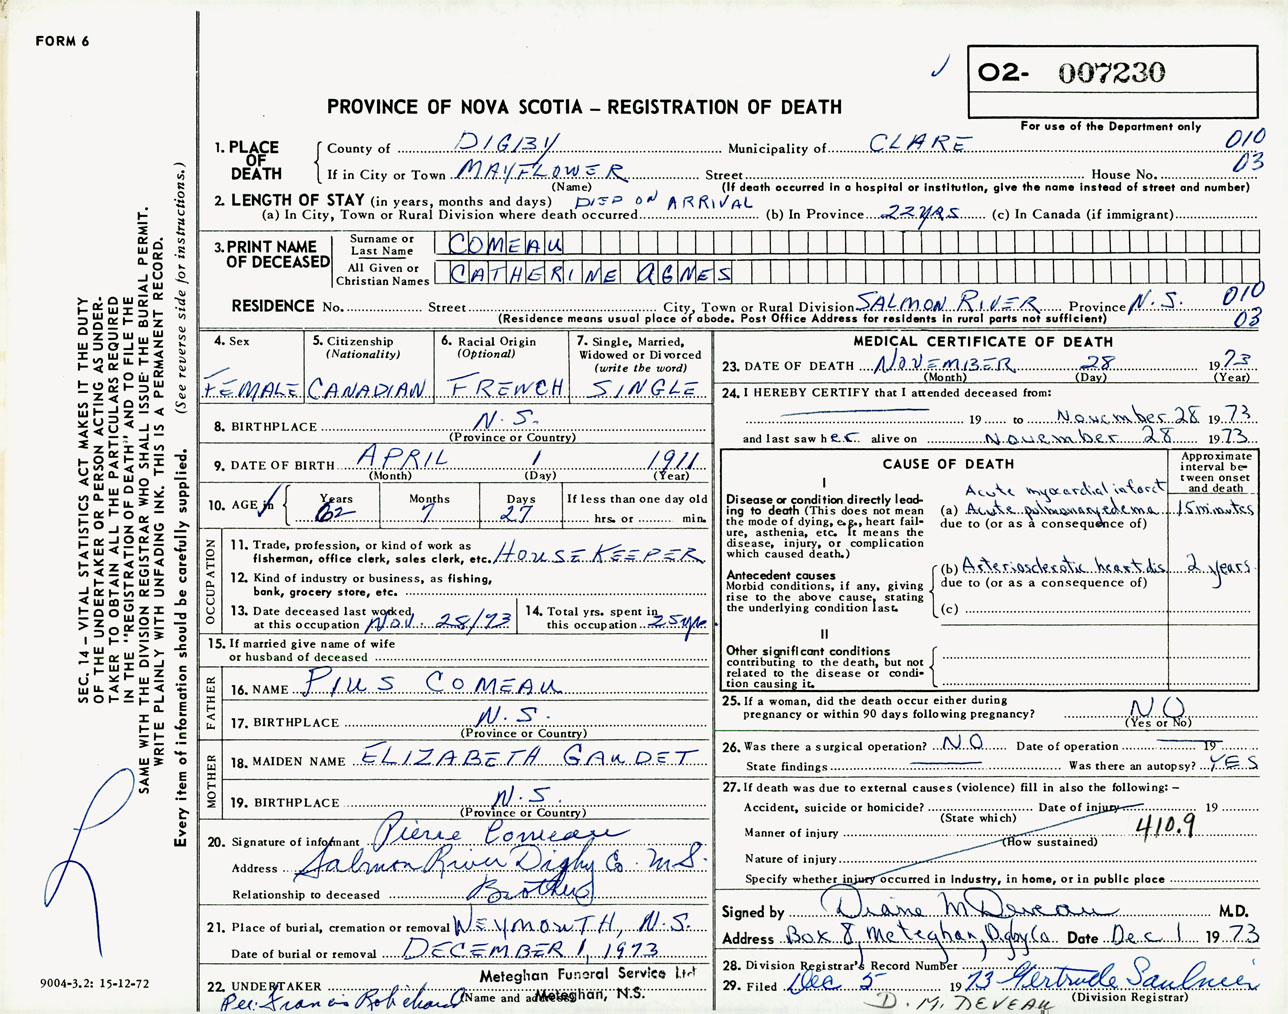 FORM 6
O2- 007230
PROVINCE OF NOVA SCOTIA – REGISTRATION OF DEATH
For use of the Department only
1. PLACE OF DEATH
County of DIGBY Municipality of CLARE 010
If in City or Town MAYFLOWER Street House No. 03
(Name) (If death occurred in a hospital or institution, give the name instead of street and number)
2. LENGTH OF STAY (in years, months and days) DIED ON ARRIVAL
(a) In City, Town or Rural Division where death occurred (b) In Province 22 YRS (c) In Canada (if immigrant)
3. PRINT NAME OF DECEASED
Surname or Last Name COMEAU
All Given or Christian Names CATHERINE AGNES
RESIDENCE No. Street City, Town or Rural Division SALMON RIVER Province N.S. 010
(Residence means usual place of abode. Post Office Address for residents in rural parts not sufficient) 03
4. Sex FEMALE
5. Citizenship (Nationality) CANADIAN
6. Racial Origin (Optional) FRENCH
7. Single, Married, Widowed or Divorced (write the word) SINGLE
8. BIRTHPLACE N.S.
(Province or Country)
9. DATE OF BIRTH APRIL 1 1911
(Month) (Day) (Year)
10. AGE in Years 62 Months 7 Days 27 If less than one day old hrs. or min.
OCCUPATION
11. Trade, profession, or kind of work as
fisherman, office clerk, sales clerk, etc. HOUSEKEEPER
12. Kind of industry or business, as fishing,
bank, grocery store, etc.
13. Date deceased last worked
at this occupation NOV. 28/73
14. Total yrs. spent in
this occupation 25 yrs.
15. If married give name of wife
or husband of deceased
FATHER
16. NAME PIUS COMEAU
17. BIRTHPLACE N.S.
(Province or Country)
MOTHER
18. MAIDEN NAME ELIZABETH GAUDET
19. BIRTHPLACE N.S.
(Province or Country)
20. Signature of informant Pierre Comeau
Address Salmon River Digby Co. N.S.
Relationship to deceased Brother
21. Place of burial, cremation or removal WEYMOUTH, N.S.
Date of burial or removal DECEMBER 1, 1973
22. UNDERTAKER Meteghan Funeral Service Ltd
(Name and address) Meteghan, N.S.
Per: Francis Robichaud
MEDICAL CERTIFICATE OF DEATH
23. DATE OF DEATH NOVEMBER 28 1973
(Month) (Day) (Year)
24. I HEREBY CERTIFY that I attended deceased from:
19 to November 28 1973
and last saw her alive on November 28 1973
CAUSE OF DEATH
Approximate interval between onset and death
I
Disease or condition directly leading to death (This does not
mean the mode of dying, e.g., heart failure, asthenia, etc. It means the
disease, injury, or complication
which caused death.)
Acute myocardial infarct
(a) Acute pulmonary edema 15 minutes
due to (or as a consequence of)
Antecedent causes
Morbid conditions, if any, giving
rise to the above cause, stating
the underlying condition last.
(b) Arteriosclerotic heart dis 2 years.
due to (or as a consequence of)
(c)
II
Other significant conditions
contributing to the death, but not
related to the disease or condition causing it.
25. If a woman, did the death occur either during
pregnancy or within 90 days following pregnancy? NO
(Yes or No)
26. Was there a surgical operation? NO Date of operation 19
State findings Was there an autopsy? YES
27. If death was due to external causes (violence) fill in also the following: –
Accident, suicide or homicide? Date of injury 19
(State which)
Manner of injury 410.9
(How sustained)
Nature of injury
Specify whether injury occurred in industry, in home, or in public place
Signed by Diane M Deveau M.D.
Address Box 8, Meteghan, Digby Co Date Dec 1 1973
28. Division Registrar's Record Number
29. Filed Dec 5 1973 Gertrude Saulnier
(Division Registrar)
D. M. DEVEAU
SEC. 14 – VITAL STATISTICS ACT MAKES IT THE DUTY
OF THE UNDERTAKER OR PERSON ACTING AS UNDERTAKER TO OBTAIN ALL THE PARTICULARS REQUIRED
IN THE "REGISTRATION OF DEATH" AND TO FILE THE
SAME WITH THE DIVISION REGISTRAR WHO SHALL ISSUE THE BURIAL PERMIT.
WRITE PLAINLY WITH UNFADING INK. THIS IS A PERMANENT RECORD.
Every item of information should be carefully supplied. (See reverse side for instructions.)
9004-3.2: 15-12-72